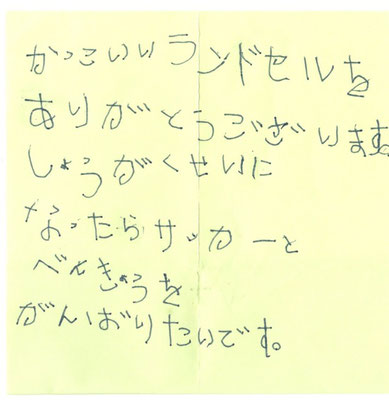 かっこいいランドセルを
ありがとうございます。
しょうがくせいに
なったらサッカーと
べんきょうを
がんばりたいです。